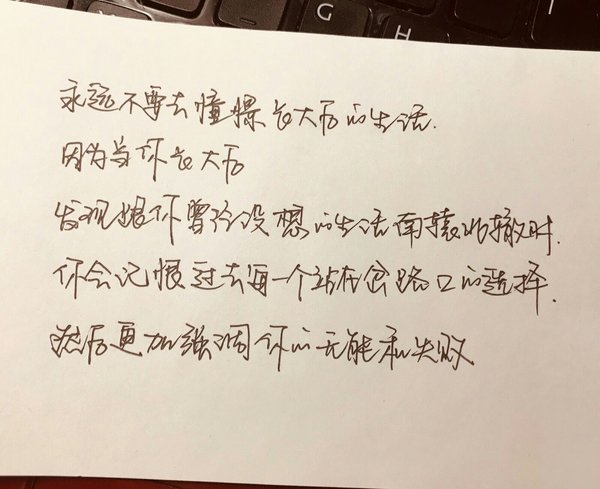 G
H
永远不要去憧憬长大后的生活.
因为当你长大后
发现跟你曾经设想的生活南辕北辙时.
你会记恨过去每一个站在岔路口的选择.
然后更加强调你的无能和失败